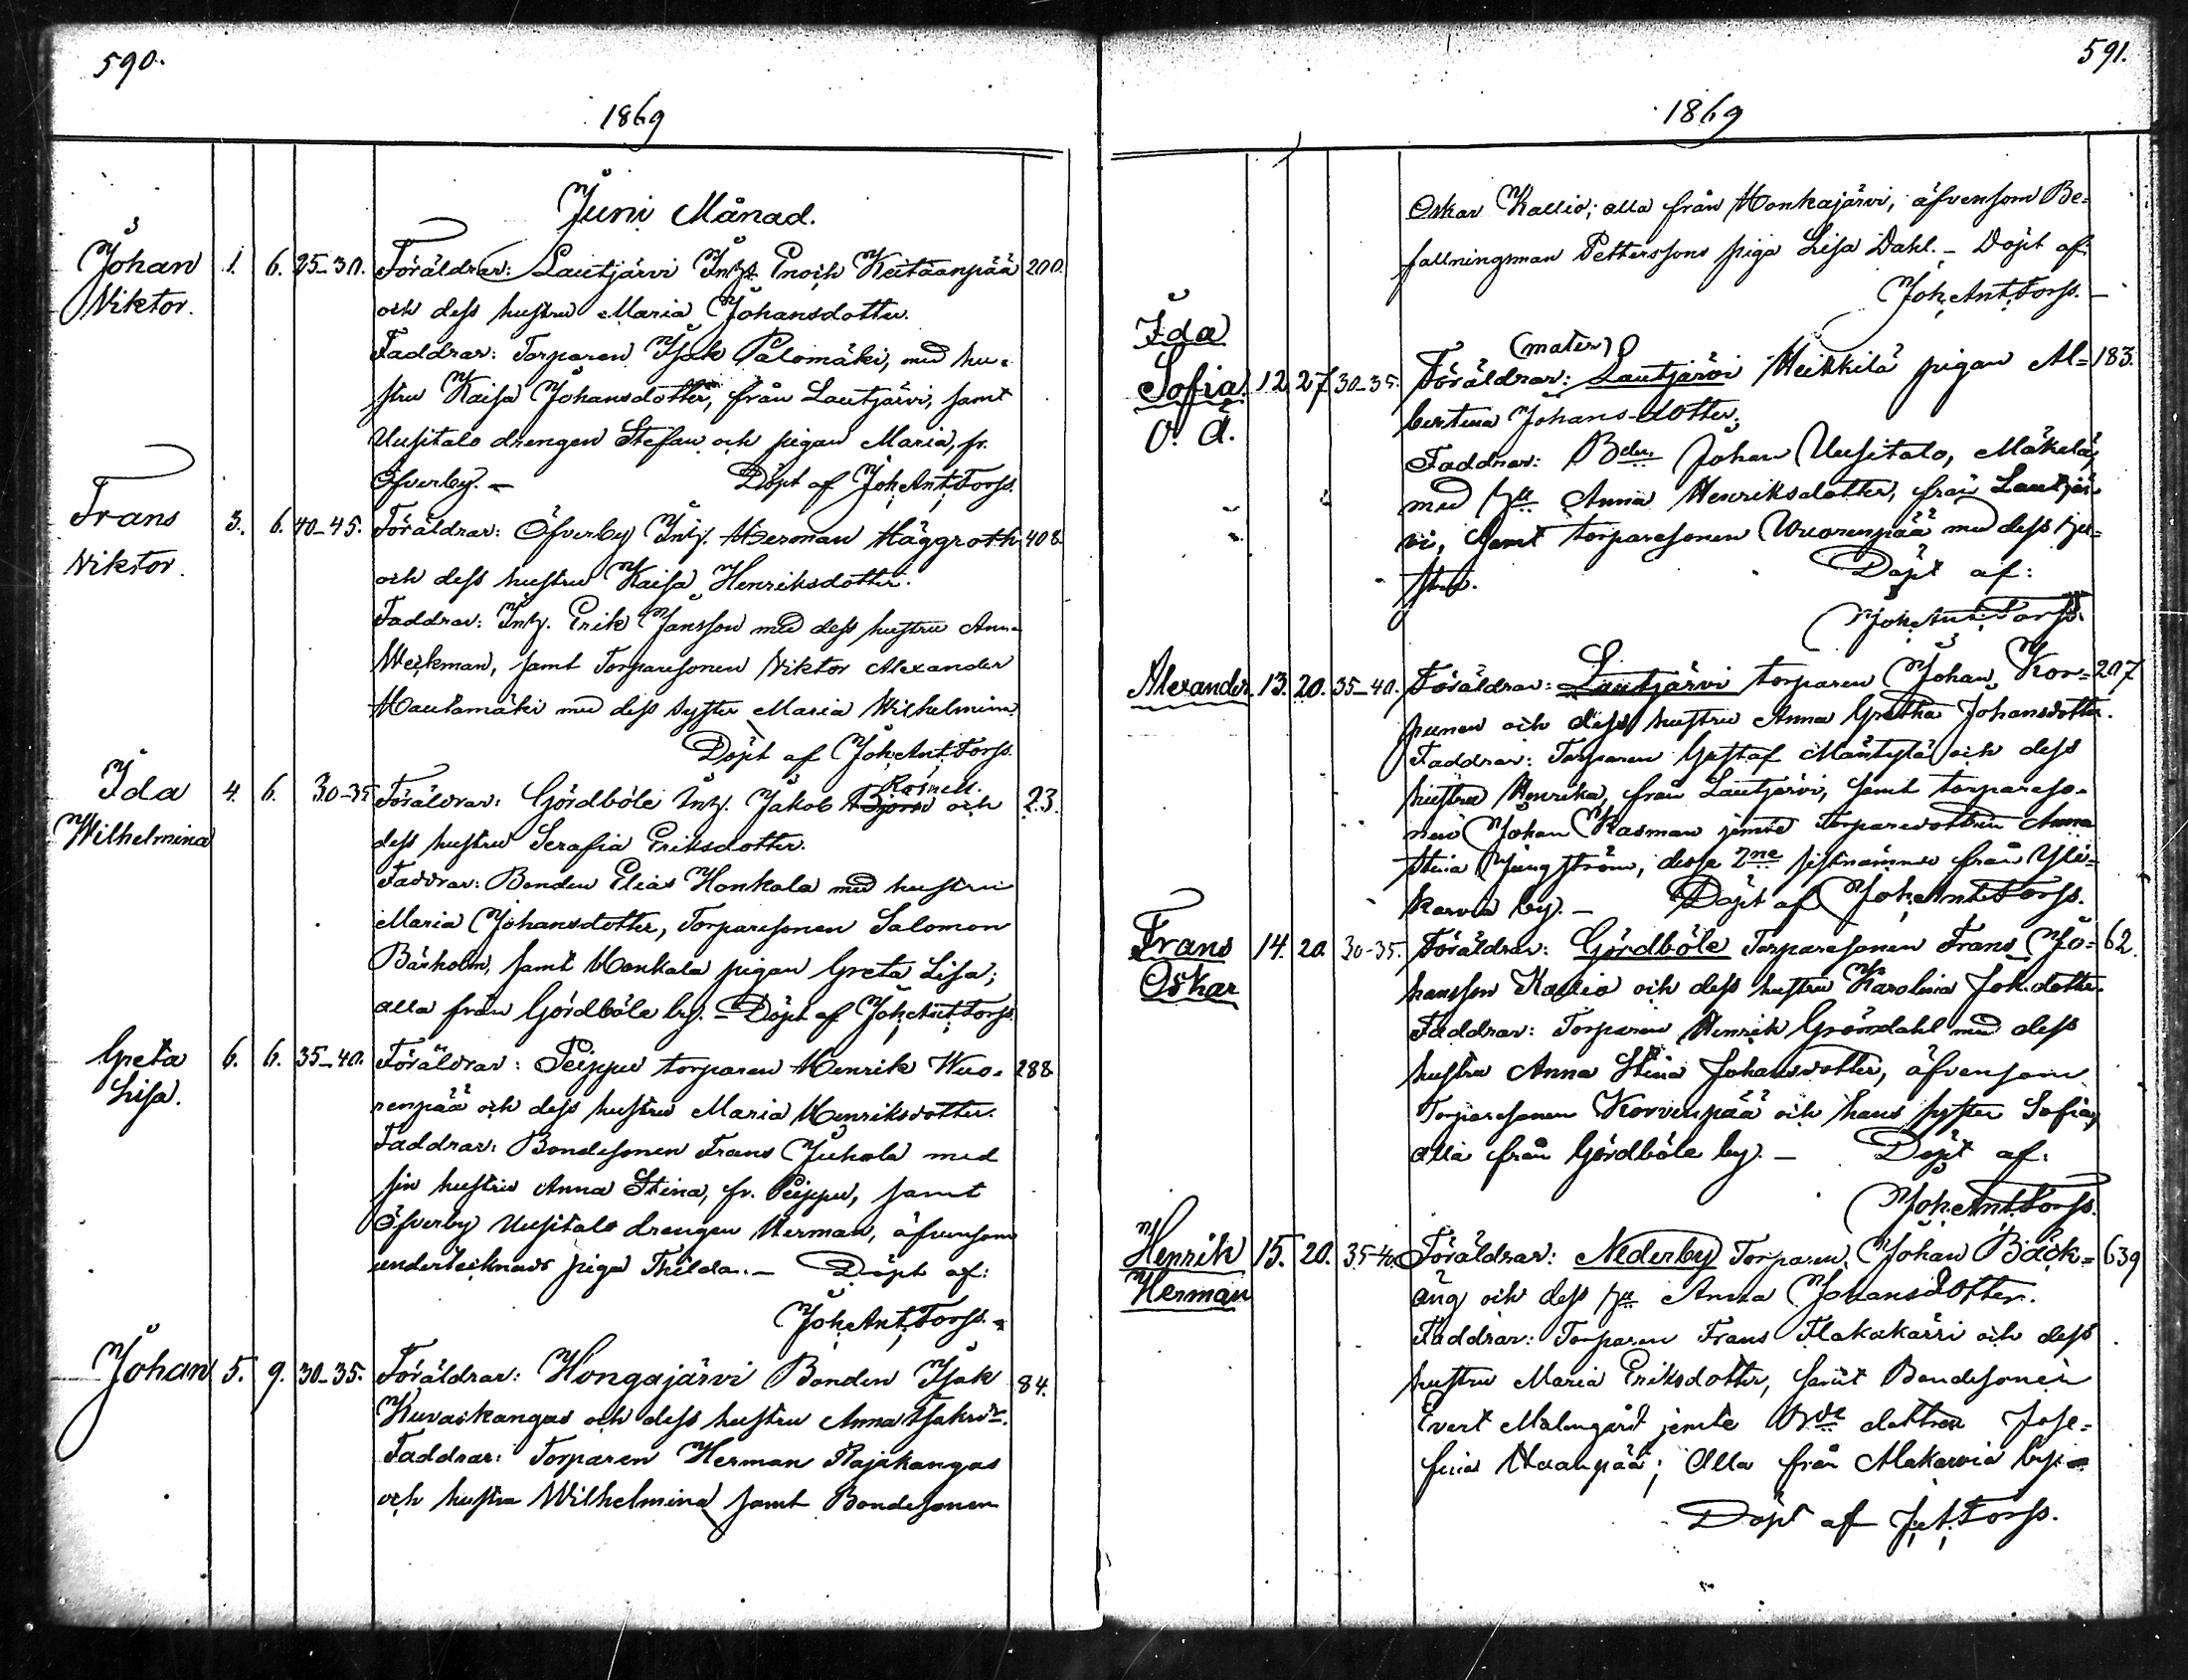 590.
1869
Juni Månad.
Johan Viktor. 1. 6. 25-30. Föräldrar: Lautjärvi Inhs. Enoch Keitaanpää 200.
och dess hustru Maria Johansdotter.
Faddrar: Torparen Isak Palomäki, med hu-
stru Kaisa Johansdotter, från Lautjärvi, samt
Uusitalo drengen Stefan och pigan Maria, fr.
Öfverby. - Döpt af Joh. Ant. Forss.
Frans Viktor. 3. 6. 40-45. Föräldrar: Öfverby Inh. Herman Häggroth 408
och dess hustru Kaisa Henriksdotter.
Faddrar: Inh. Erik Jansson med dess hustru Anna
Weckman, samt Torparesonen Viktor Alexander
Hautamäki med dess syster Maria Wilhelmina.
Döpt af Joh. Ant. Forss.
Ida Wilhelmina 4. 6. 30-35 Föräldrar: Gördböle Inh. Jakob Björn Rosnell. och 23.
dess hustru Serafia Eriksdotter.
Faddrar: Bonden Elias Honkala med hustru
Maria Johansdotter, Torparesonen Salomon
Bärholm, samt Honkala pigan Greta Lisa;
alla från Gördböle by. - Döpt af Joh. Ant. Forss.
Greta Lisa. 6. 6. 35-40. Föräldrar: Peippu torparen Henrik Wuo- 288
renpää och dess hustru Maria Henriksdotter.
Faddrar: Bondesonen Frans Juhola med
sin hustru Anna Stina, fr. Peippu, samt
Öfverby Uusitalo drengen Herman, äfvensom
undertecknads piga Thilda. - Döpt af:
Joh. Ant. Forss. -
Johan 5. 9. 30-35. Föräldrar: Hongajärvi Bonden Isak 84.
Kuvaskangas och dess hustru Anna Isaksdr.
Faddrar: Torparen Herman Rajakangas
och hustru Wilhelmina samt Bondesonen
591.
1869
Oskar Kallio; alla från Honkajärvi, äfvensom Be-
fallningsman Petterssons piga Lisa Dahl. - Döpt af
Joh. Ant. Forss. -
(mater)
Ida Sofia. O. Ä. 12. 27 30-35. Föräldrar: Lautjärvi Heikkilä pigan Al- 183.
bertina Johans-dotter.
Faddrar: Bden Johan Uusitalo, Mäkelä,
med hu Anna Henriksdotter, från Lautjär-
vi, samt torparesonen Wuorenpää med dess hu-
stru. Döpt af:
Joh. Ant. Forss.
Alexander. 13. 20. 35-40. Föräldrar: Lautjärvi torparen Johan Kor- 207
punen och dess hustru Anna Gretha Johansdotter.
Faddrar: Torparen Gustaf Mäntylä och dess
hustru Henrika, från Lautjärvi, samt torpareso-
nen Johan Rasman jemte Torparedottren Anna
Stina Ljungström, dessa 2ne sistnämnde från Yli-
karvia by. - Döpt af Joh. Ant. Forss.
Frans Oskar 14. 20. 30-35. Föräldrar: Gördböle Torparesonen Frans Jo- 62.
hansson Kallio och dess hustru Karolina Joh.dotter.
Faddrar: Torparen Henrik Gröndahl med dess
hustru Anna Stina Johansdotter, äfvensom
Torparesonen Korvenpää och hans syster Sofia,
alla från Gördböle by. - Döpt af:
Joh. Ant. Forss.
Henrik Herman 15. 20. 35-40. Föräldrar: Nederby Torparen Johan Bäck- 639
äng och dess hu Anna Johansdotter.
Faddrar: Torparen Frans Flakakärri och dess
hustru Maria Eriksdotter, samt Bondesonen
Evert Malmgård jemte Bde dottren Jose-
fina Haanpää; Alla från Alakarvia by. -
Döpt af J. A. Forss.